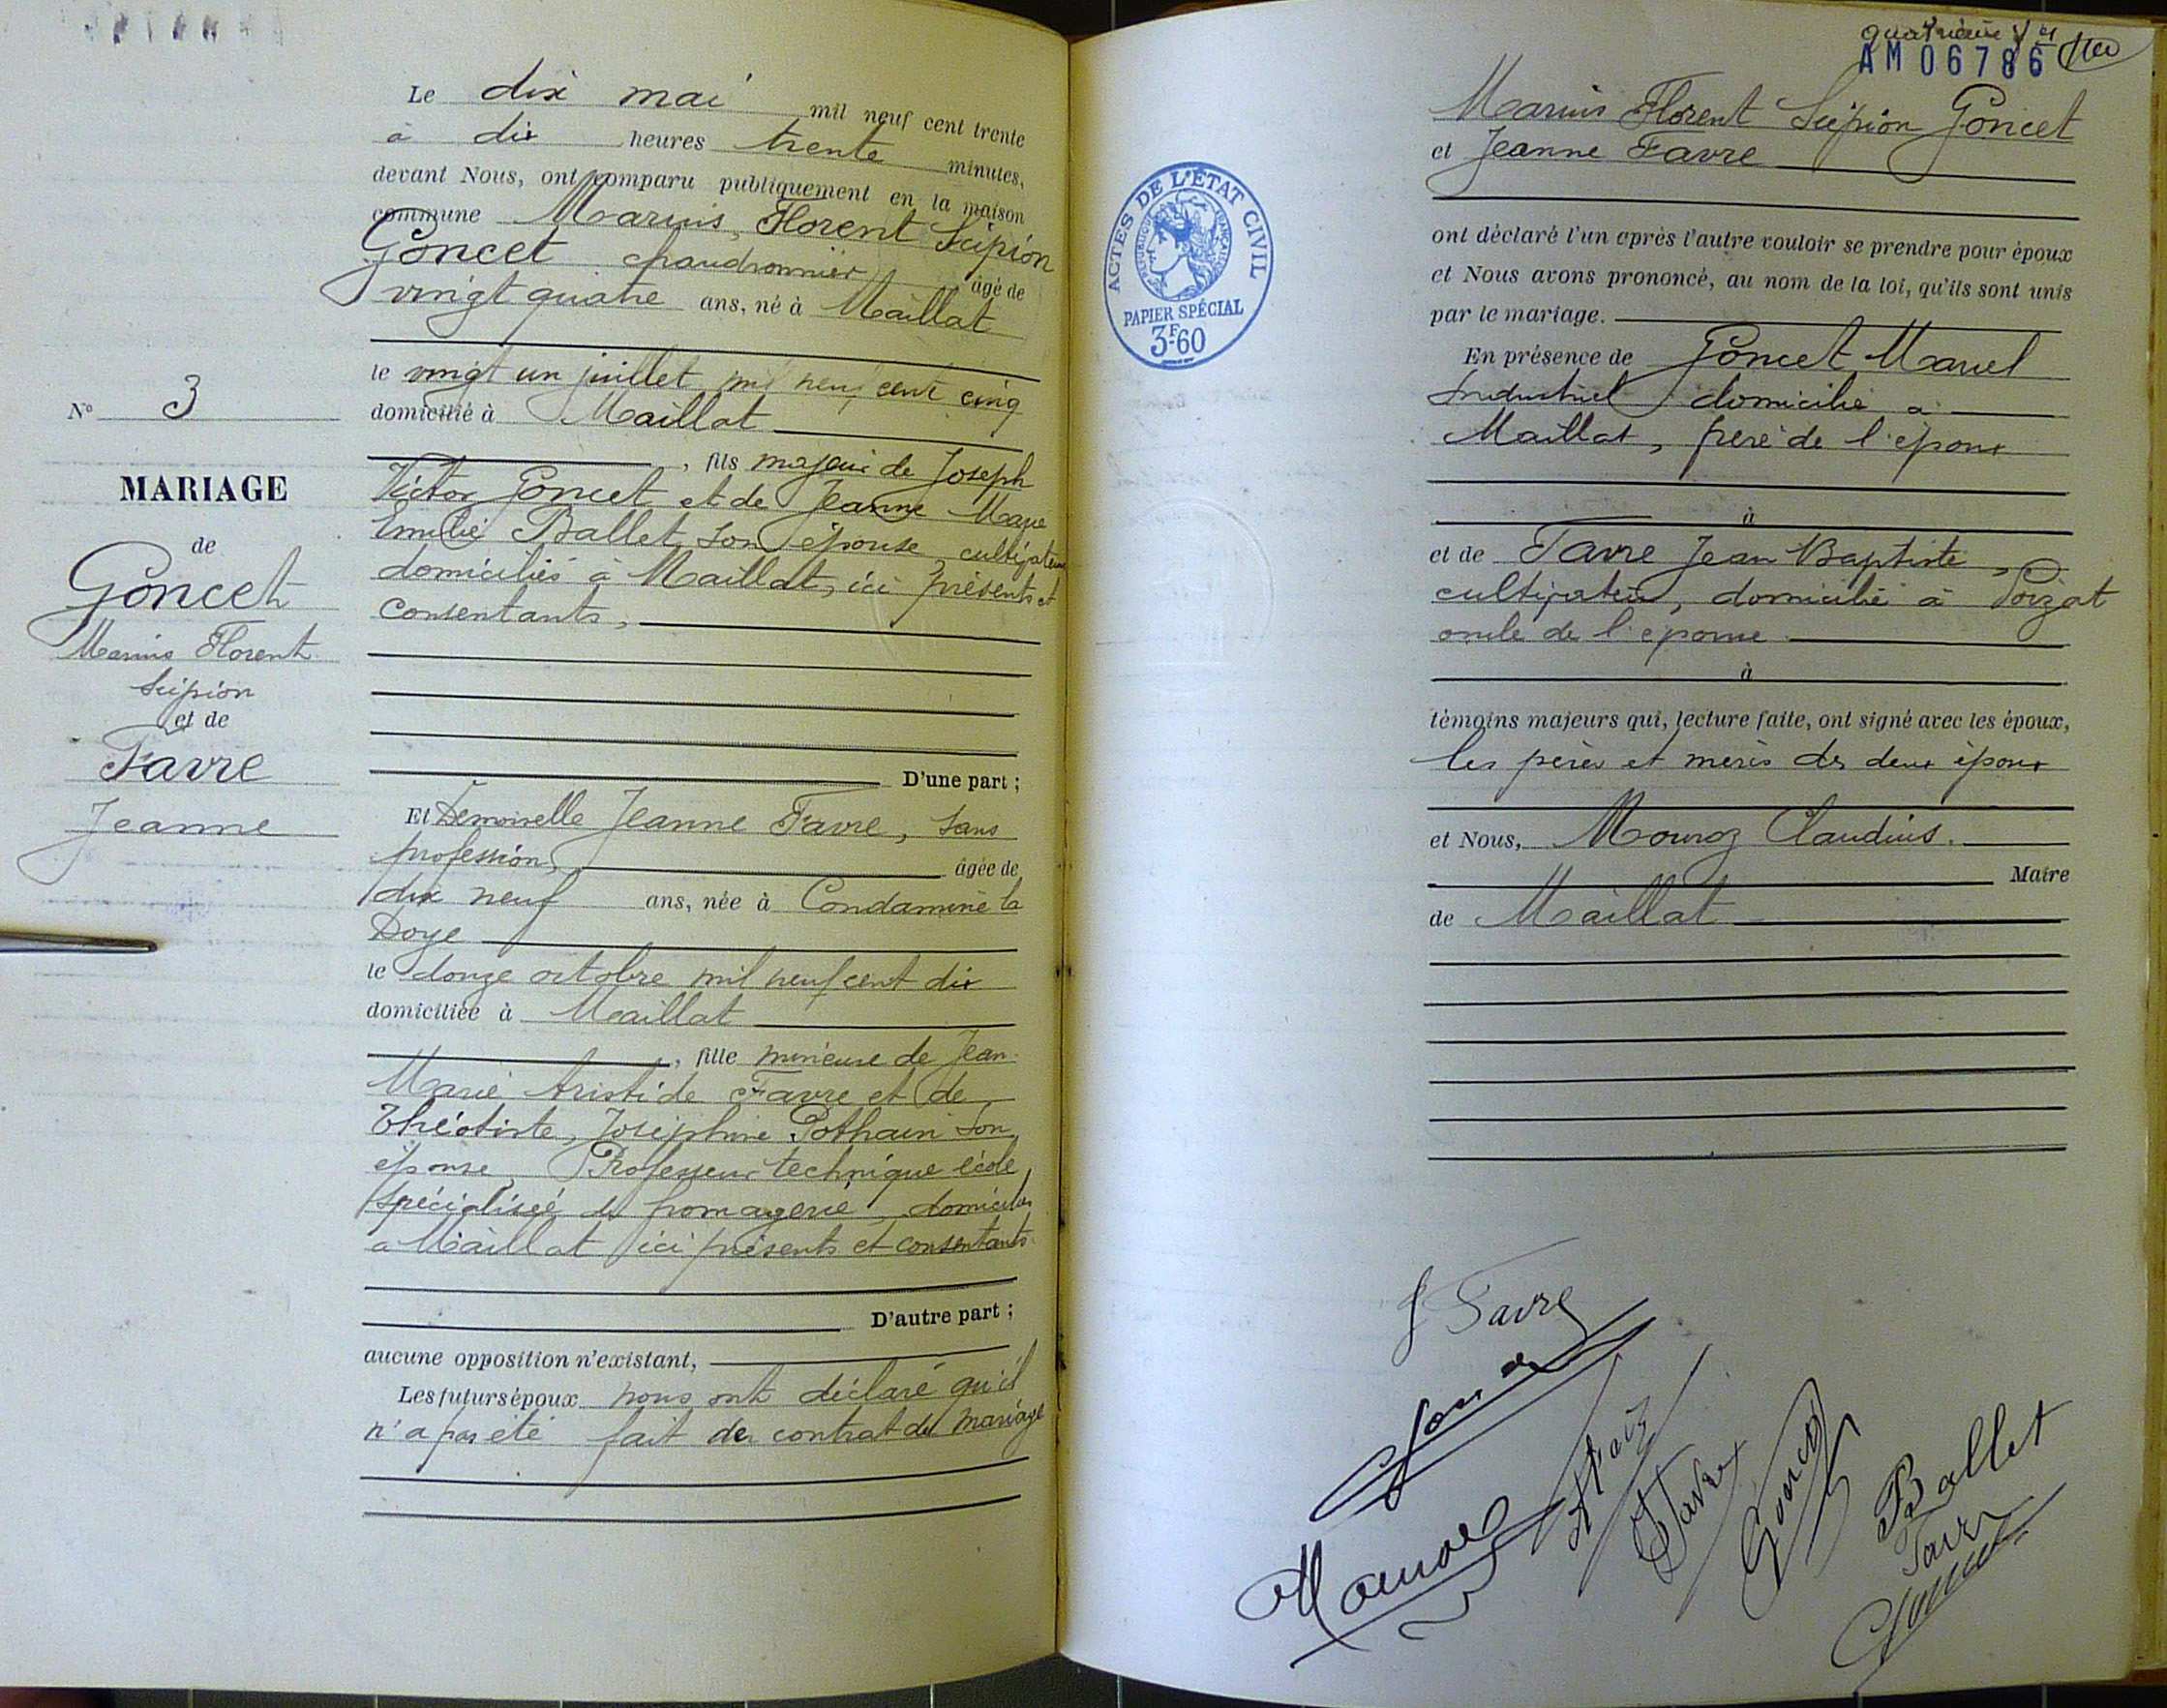 N° 3
MARIAGE
de
Goncet
Marius Florent
Scipion
et de
Favre
Jeanne
Le dix mai mil neuf cent trente
à dix heures trente minutes,
devant Nous, ont comparu publiquement en la maison
commune Marius, Florent Scipion
Goncet chaudronnier âgé de
vingt quatre ans, né à Maillat
le vingt un juillet mil neuf cent cinq
domicilié à Maillat
, fils majeur de Joseph
Victor Goncet et de Jeanne Marie
Emilie Ballet son épouse, cultivateurs
domiciliés à Maillat, ici présents et
consentants,
D'une part ;
Et Demoiselle Jeanne Favre, sans
profession, âgée de
dix neuf ans, née à Condamine la
Doye
le douze octobre mil neuf cent dix
domiciliée à Maillat
, fille mineure de Jean
Marie Aristide Favre et de
Théotiste, Joséphine Pothain son
épouse, Professeur technique école
spécialisée de fromagerie, domiciliés
a Maillat ici présents et consentants
D'autre part ;
aucune opposition n'existant,
Les futurs époux nous ont déclaré qu'il
n'a pas été fait de contrat de mariage
quatrième
AM 06786
Marius Florent Scipion Goncet
et Jeanne Favre
ACTES DE L'ÉTAT CIVIL
RÉPUBLIQUE FRANÇAISE
PAPIER SPÉCIAL
3F60
ont déclaré l'un après l'autre vouloir se prendre pour époux
et Nous avons prononcé, au nom de la loi, qu'ils sont unis
par le mariage.
En présence de Goncet Marcel
Industriel domicilié à
Maillat, frère de l'époux
à
et de Favre Jean Baptiste,
cultivateur, domicilié à Poizat
oncle de l'épouse
à
témoins majeurs qui, lecture faite, ont signé avec les époux,
les pères et mères des deux époux
et Nous, Mouroz Claudius.
Maire
de Maillat
J Favre
Goncet
Mouroz
Favre
Goncet
Ballet
Favre